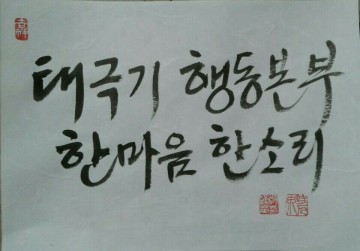 태극기 행동본부
한마음 한소리